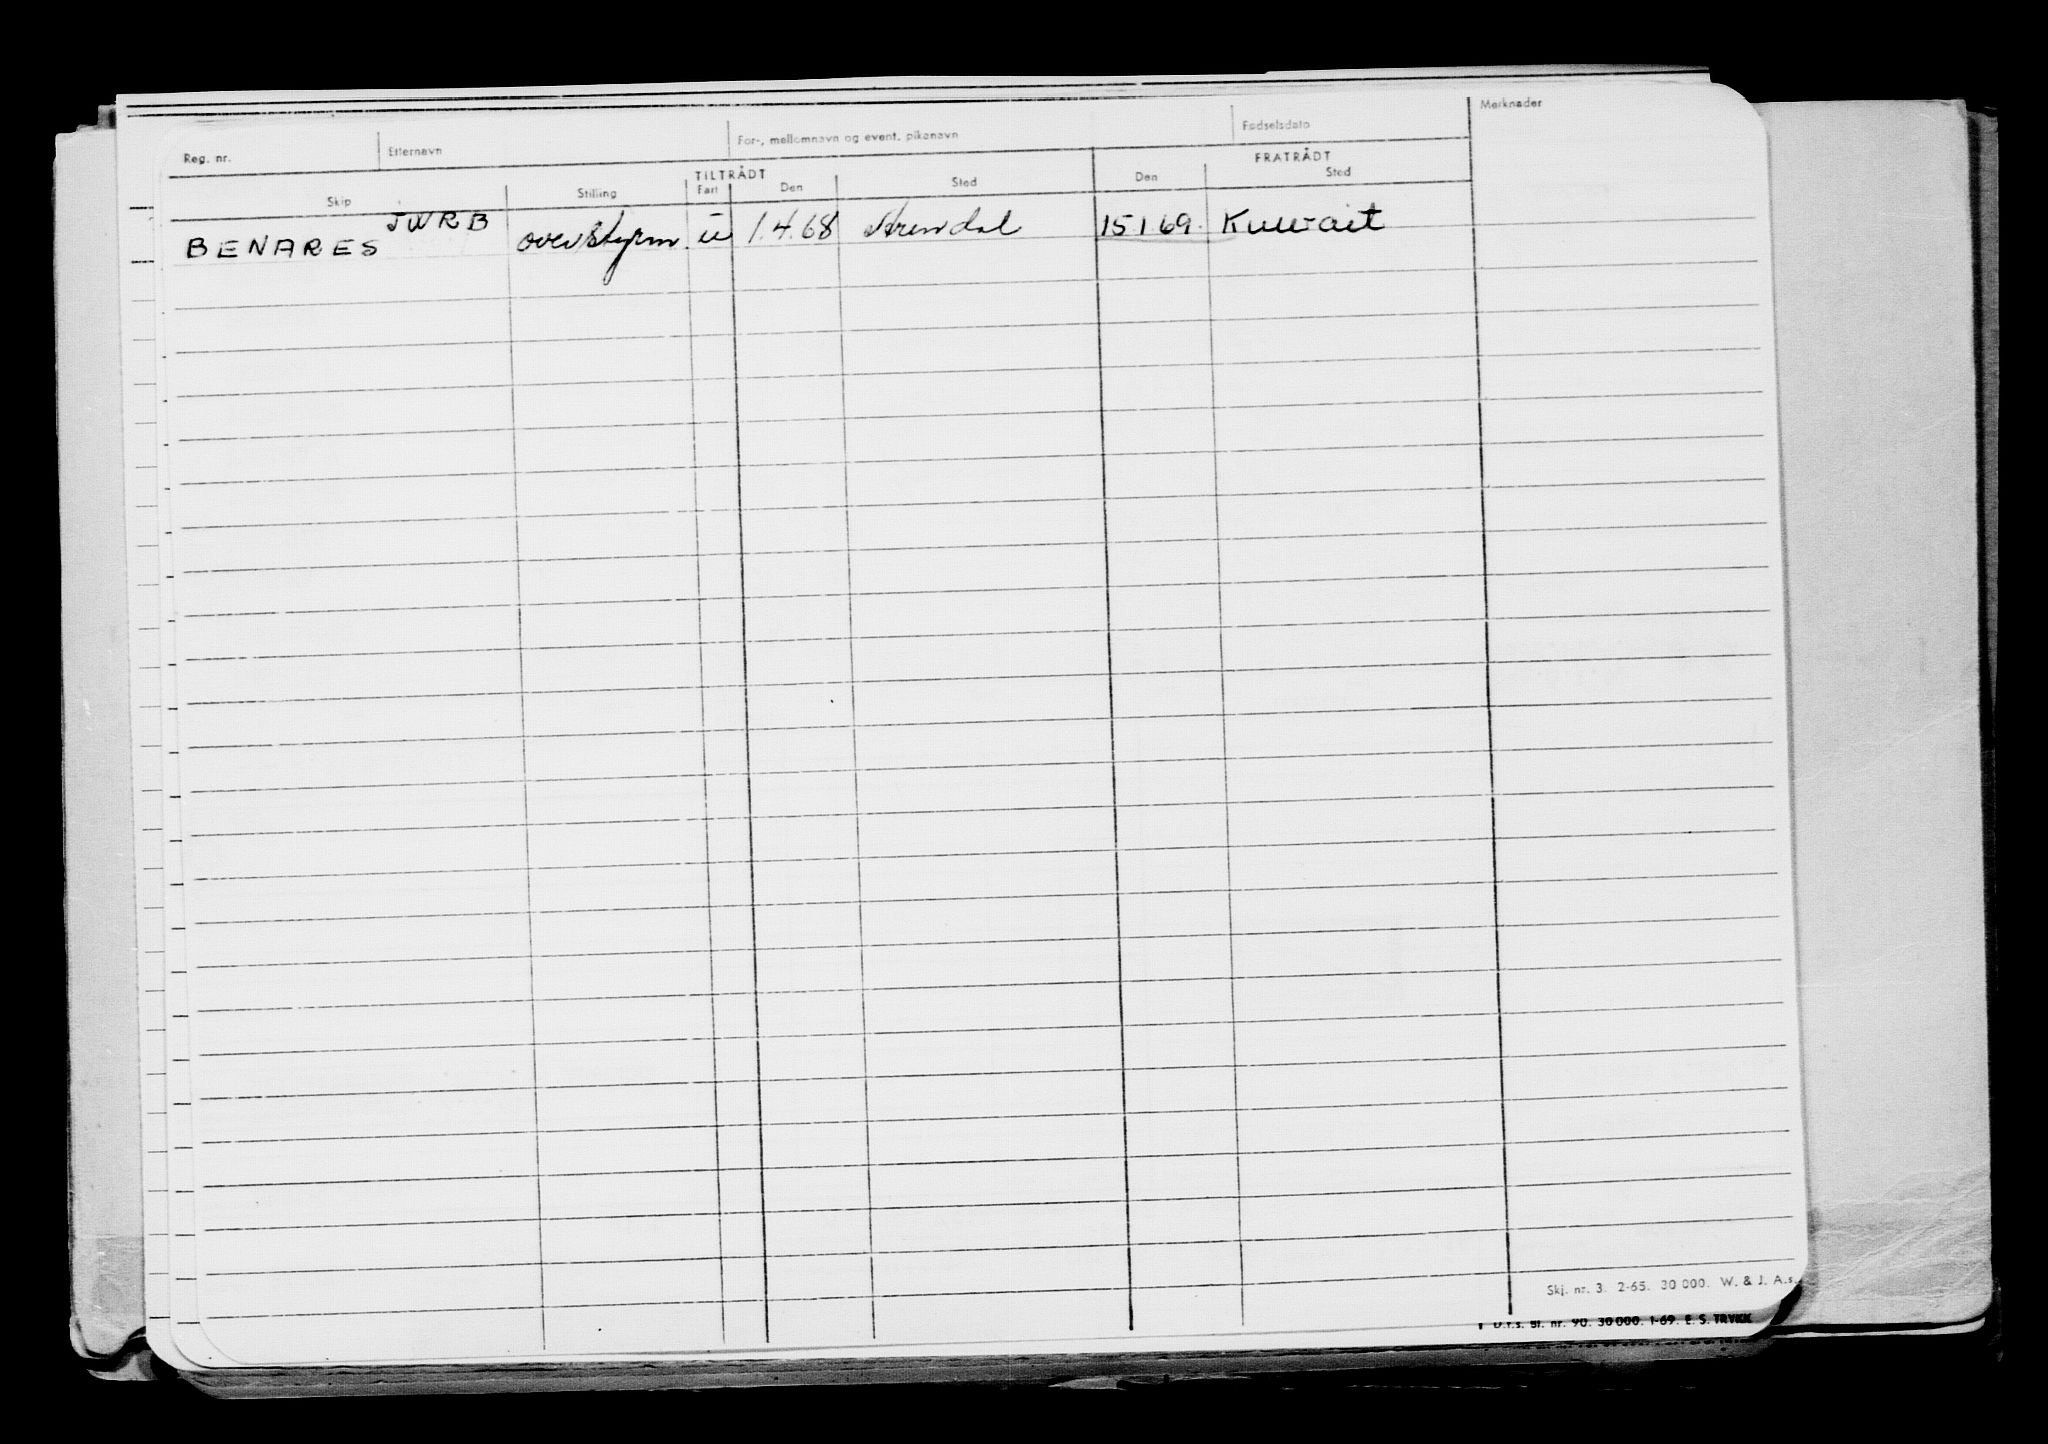 Reg. nr. Etternavn For-, mellomnavn og event. pikenavn Fødselsdato Merknader
TILTRÅDT FRATRÅDT
Skip Stilling Fart Den Sted Den Sted
JWRB
BENARES overstyrm. u 1.4.68 Arendal 15.1.69. Kuwait
Skj. nr. 3. 2-65. 30 000. W. & J. A.s.
nr. 90. 30 000. 1-69. E. S. TRYKK